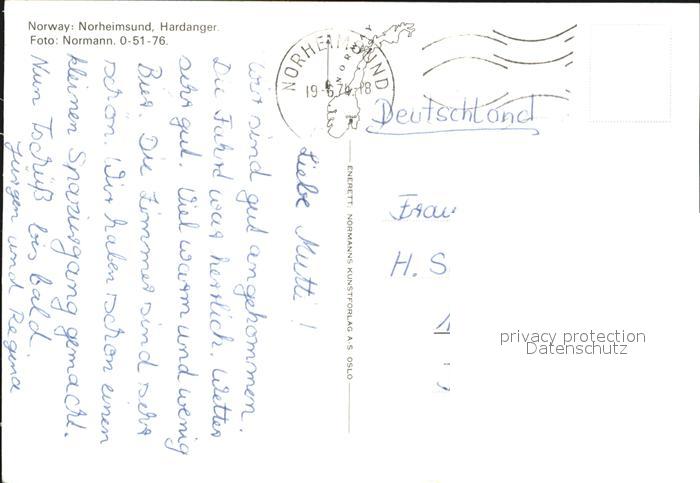 Norway: Norheimsund, Hardanger.
Foto: Normann. 0-51-76.
NORHEIMSUND
19-6.78-18
NORWAY
Deutschland
Frau
H. S
privacy protection
Datenschutz
ENERETT: NORMANNS KUNSTFORLAG A/S OSLO
Liebe Mutti!
Wir sind gut angekommen.
Die Fahrt war herrlich. Wetter
sehr gut. Viel warm und wenig
Bier. Die Zimmer sind sehr
schön. Wir haben schon einen
kleinen Spaziergang gemacht.
Nun Tschüß bis bald.
Jürgen und Regina